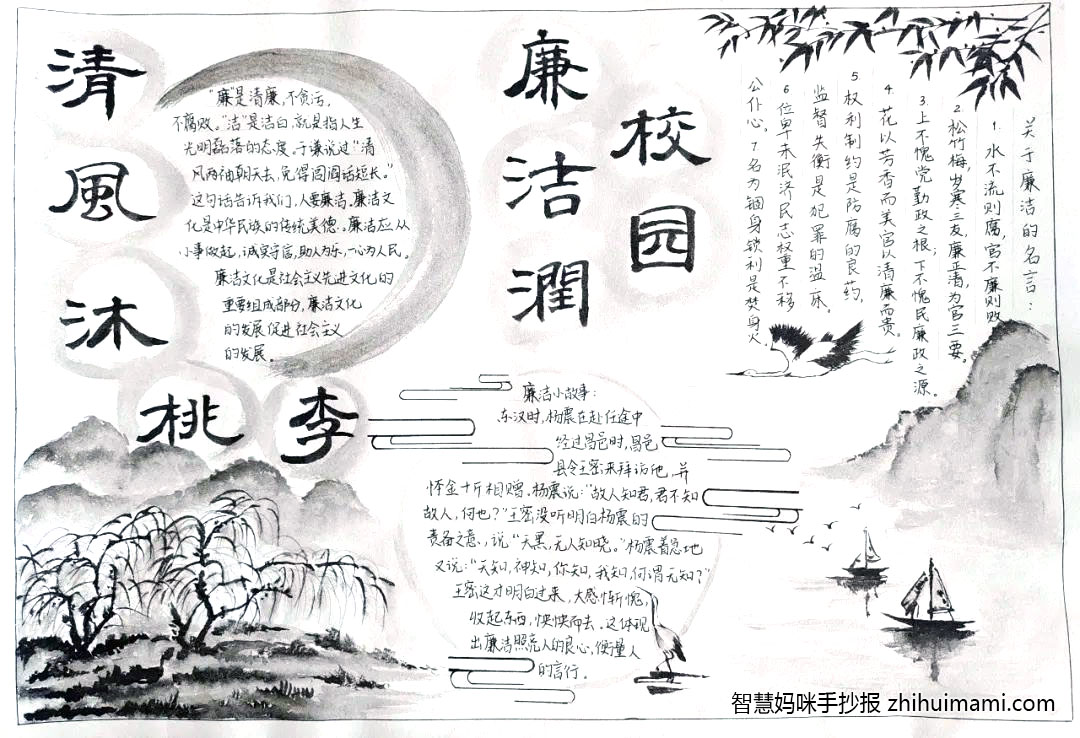 清風沐桃李
廉洁潤校园
“廉”是清廉,不贪污,
不腐败。“洁”是洁白,就是指人生
光明磊落的态度。于谦说过“清
风两袖朝天去,免得闾阎话短长。”
这句话告诉我们,人要廉洁。廉洁文
化是中华民族的传统美德。廉洁应从
小事做起,诚实守信,助人为乐,一心为人民。
廉洁文化是社会主义先进文化的
重要组成部分,廉洁文化
的发展促进社会主义
的发展。
关于廉洁的名言:
1. 水不流则腐,官不廉则败
2. 松竹梅,岁寒三友,廉正清,为官三要。
3. 上不愧党勤政之根,下不愧民廉政之源。
4. 花以芳香而美官以清廉而贵。
5 权利制约是防腐的良药,
监督失衡是犯罪的温床。
6 位卑未泯济民志权重不移
公仆心, 7 名为锢身锁利是焚身火
廉洁小故事:
东汉时,杨震在赴任途中
经过昌邑时,昌邑
县令王密来拜访他,并
怀金十斤相赠。杨震说:“故人知君,君不知
故人,何也?”王密没听明白杨震的
责备之意,说“天黑,无人知晓。”杨震着急地
又说:“天知,神知,你知,我知,何谓无知?”
王密这才明白过来,大感惭愧,
收起东西,怏怏而去。这体现
出廉洁照亮人的良心,衡量人
的言行。
智慧妈咪手抄报 zhihuimami.com